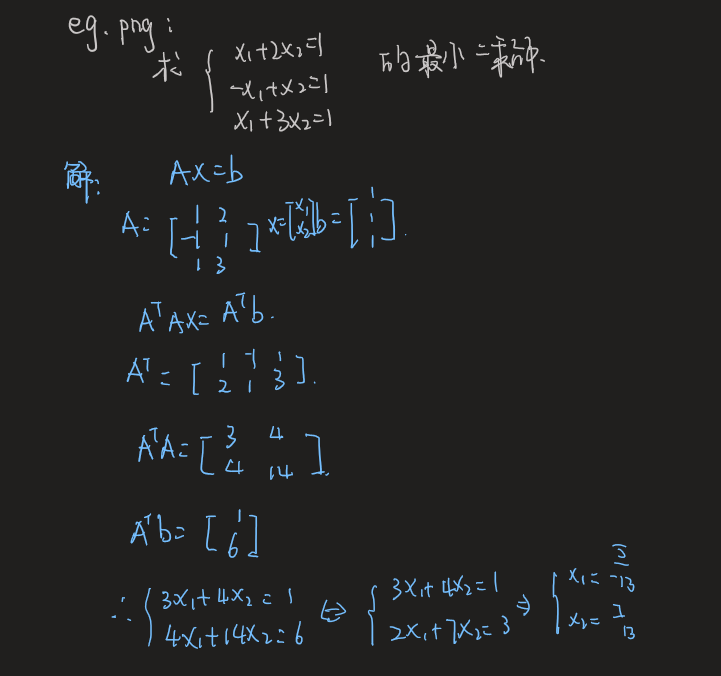 eg. png:
求 { x₁+2x₂=1
-x₁+x₂=1
x₁+3x₂=1 的最小二乘解.
解:
Ax=b
A= [1 2; -1 1; 1 3] x=[x₁; x₂] b=[1; 1; 1].
AᵀAx=Aᵀb.
Aᵀ= [1 -1 1; 2 1 3].
AᵀA= [3 4; 4 14].
Aᵀb= [1; 6]
∴ { 3x₁+4x₂=1 ⇔ { 3x₁+4x₂=1 ⇒ { x₁=-5/13
4x₁+14x₂=6 2x₁+7x₂=3 x₂=7/13